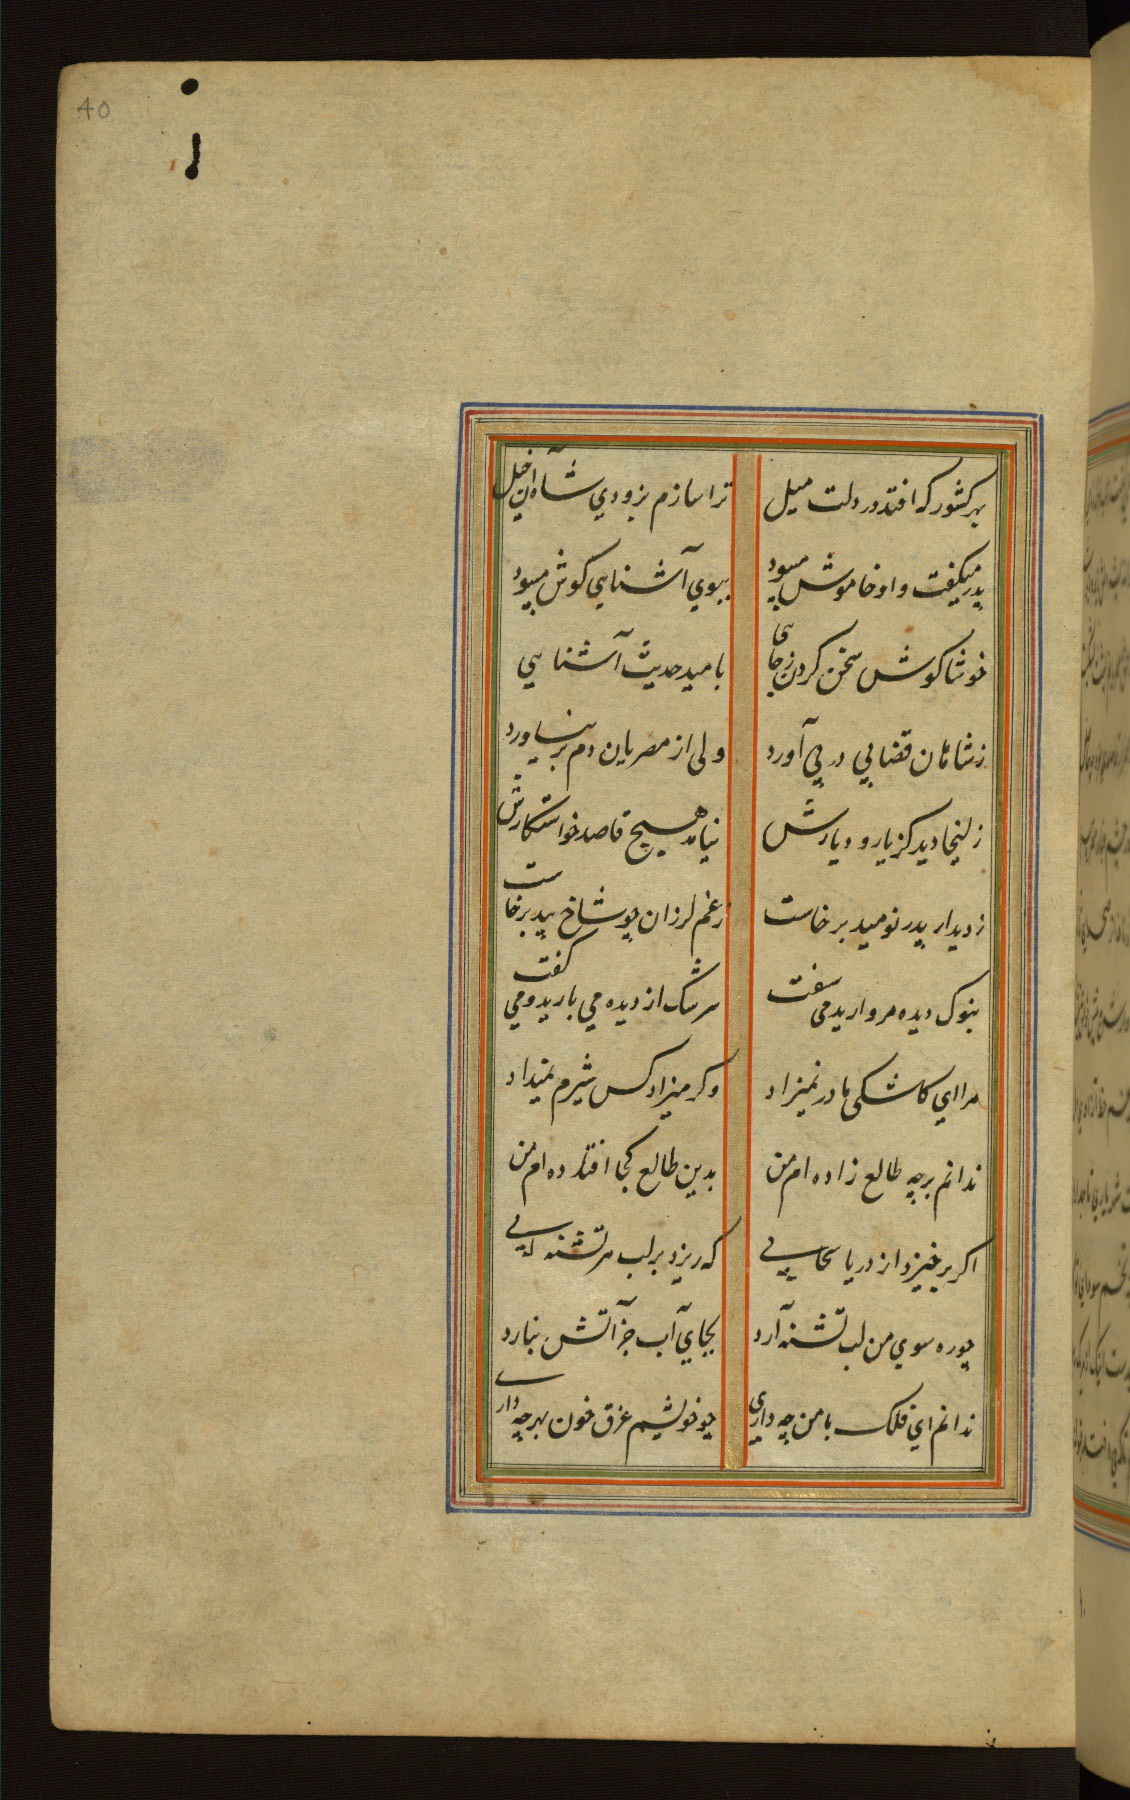 40
بهر کشور که افتد در دلت میل ترا سازم بزودي شاه ان خیل
پدر میکفت و او خاموش میبود ببوي آشنايي کوش میبود
خوشا کوش سخن کردن ز جايى باميد حديث آشنايي
ز شاهان قضايي در پي آورد ولى از مصريان دم بر نياورد
زليخا ديد کز يار و ديارش نيامد هيچ قاصد خواستکارش
ز ديدار پدر نوميد برخاست ز غم لرزان چو شاخ بيد برخاست
بنوک ديده مرواريد مى سفت سرشک از ديده مي باريد و مي کفت
مرا اي کاشکى مادر نميزاد وکر ميزاد کس شيرم نميداد
ندانم بر چه طالع زاده ام من بدين طالع کجا افتاده ام من
اکر بر خيزد از دريا سحابي که ريزد بر لب هر تشنه ابي
چو ره سوي من لب تشنه آرد بجاي آب جز آتش نبارد
ندانم اي فلک با من چه داري چو خويشم غرق خون بهر چه داري